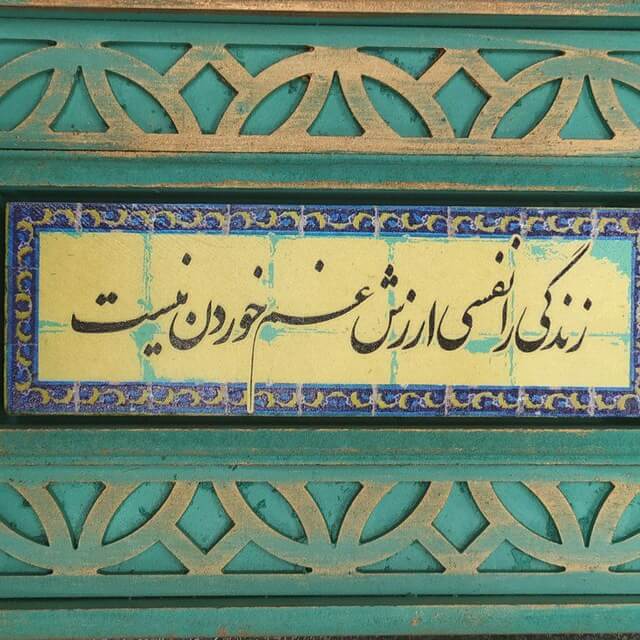 زندگی را نفسی ارزش غم خوردن نیست